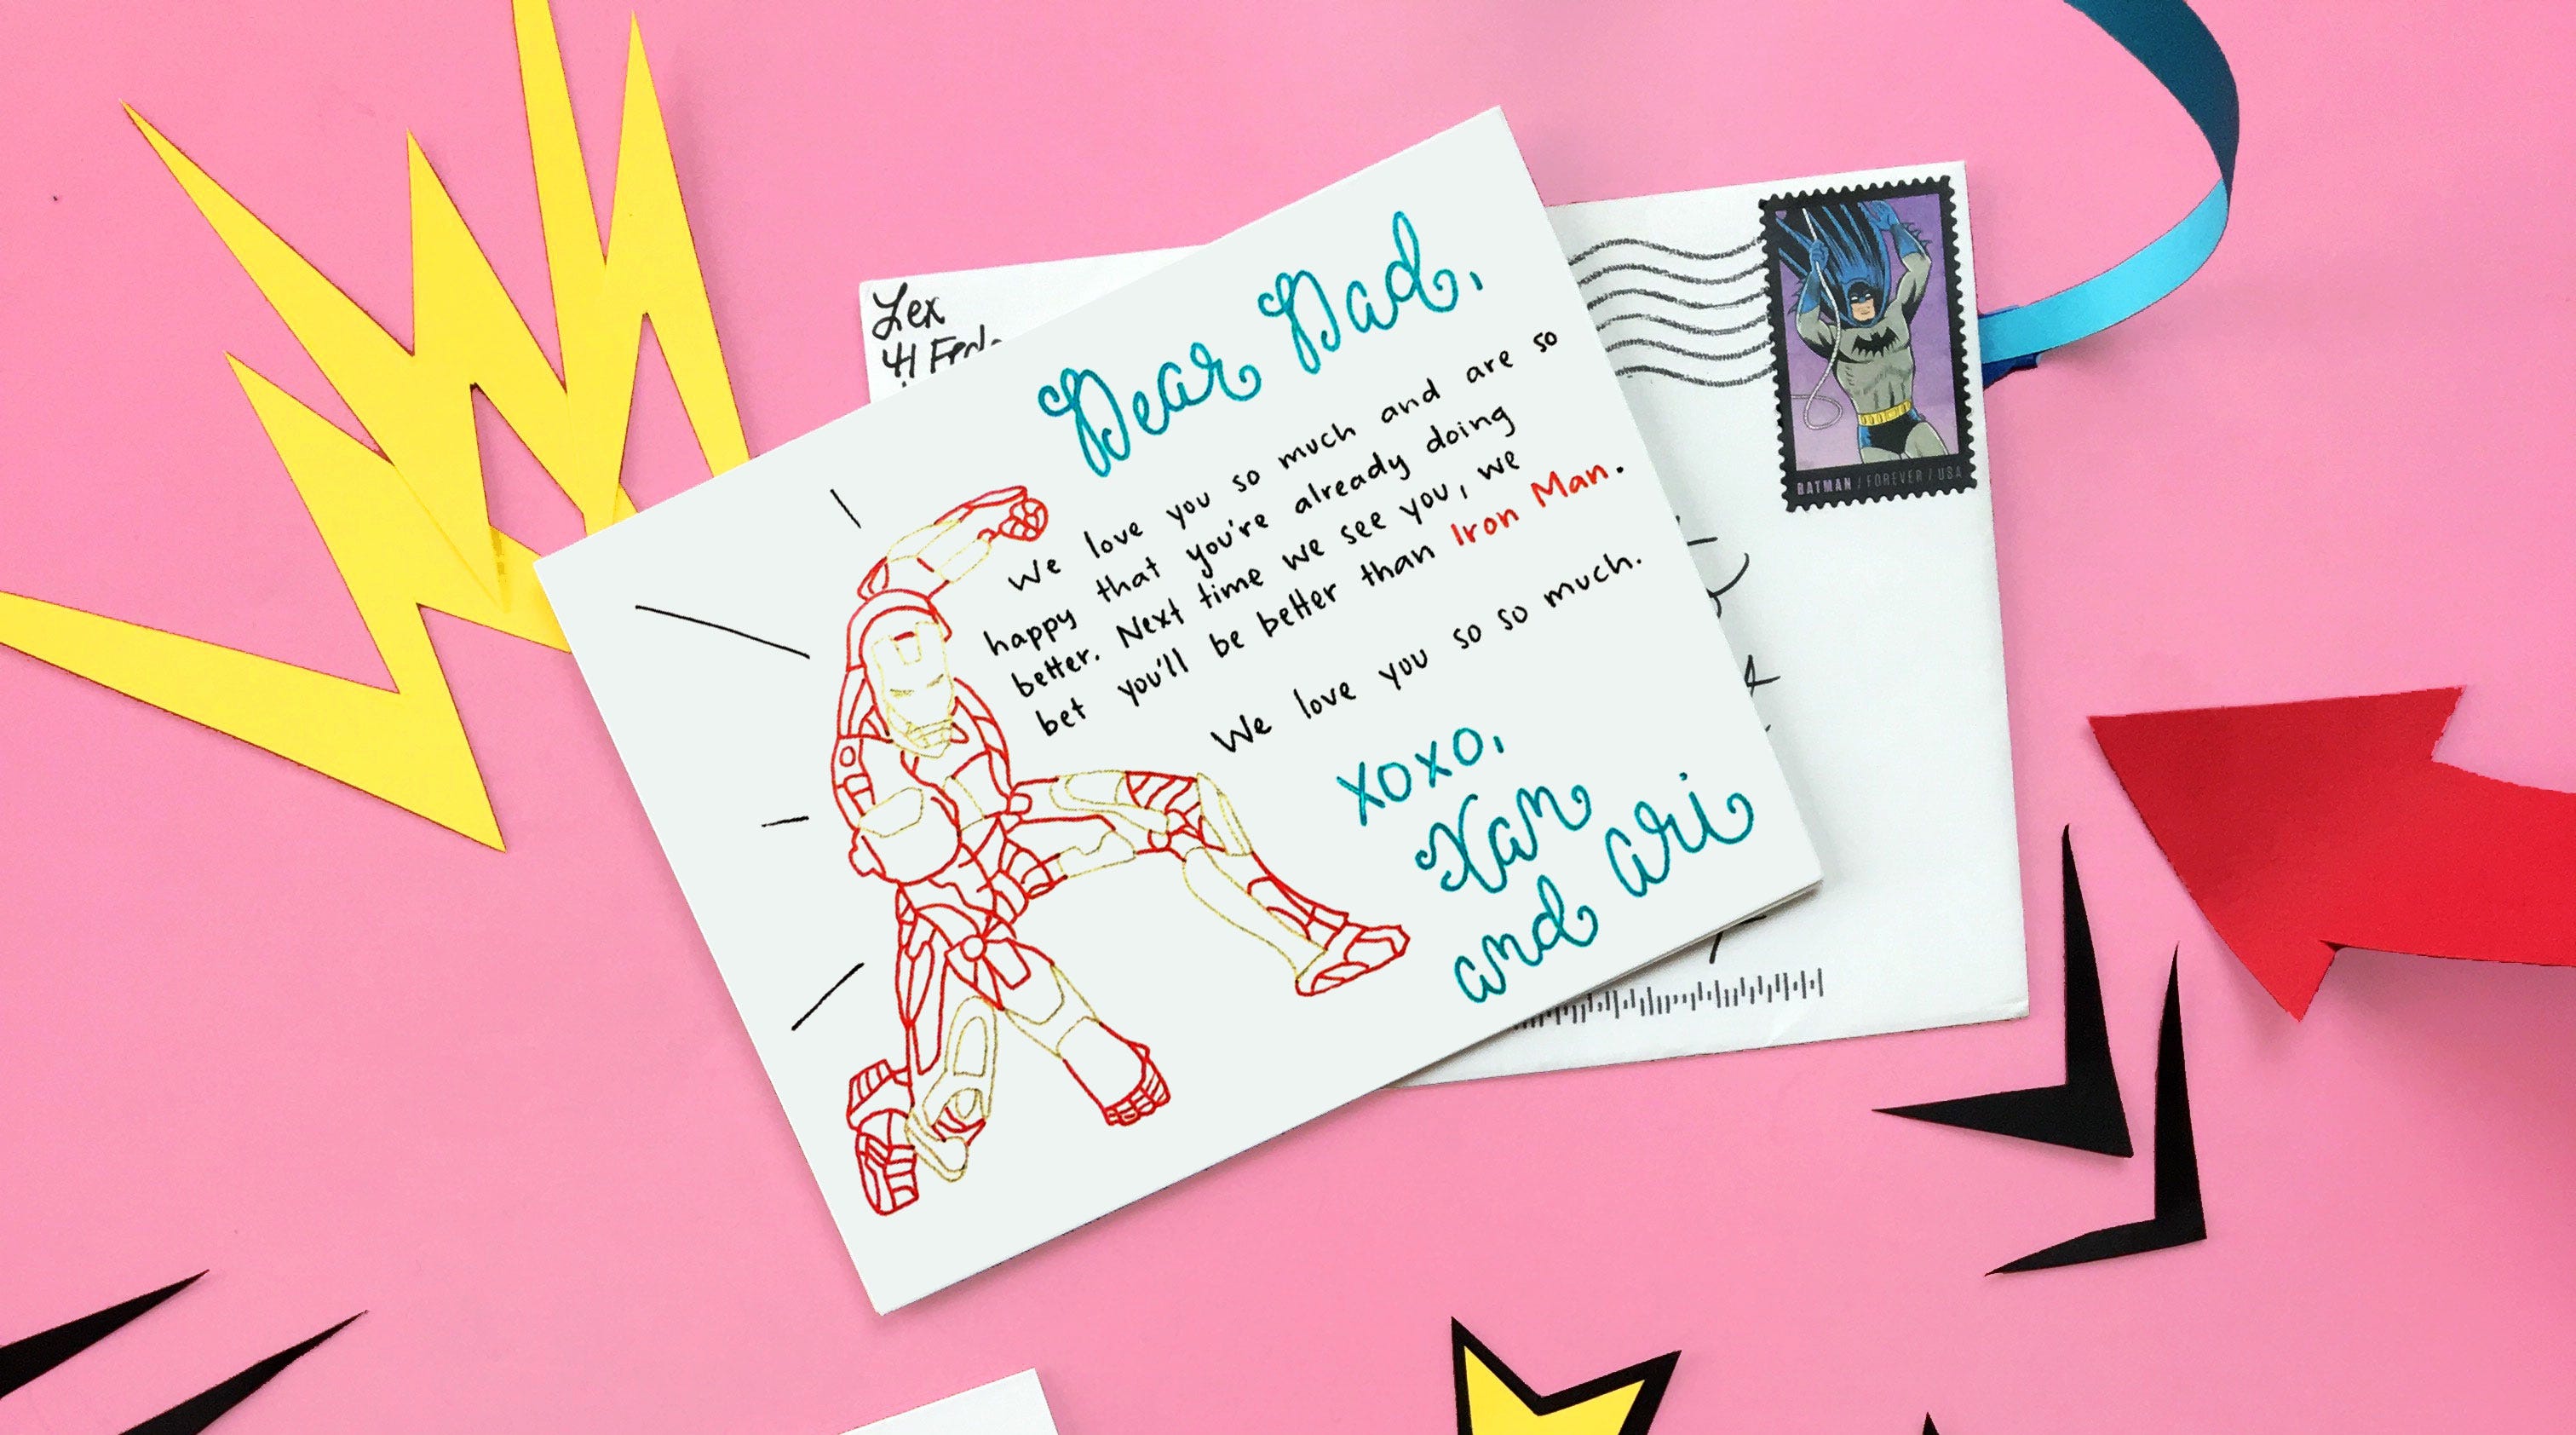 Lex
Dear Dad,
We love you so much and are so
happy that you're already doing
better. Next time we see you, we
bet you'll be better than Iron Man.
We love you so so much.
xoxo,
Xan
and Ari
BATMAN / FOREVER / USA